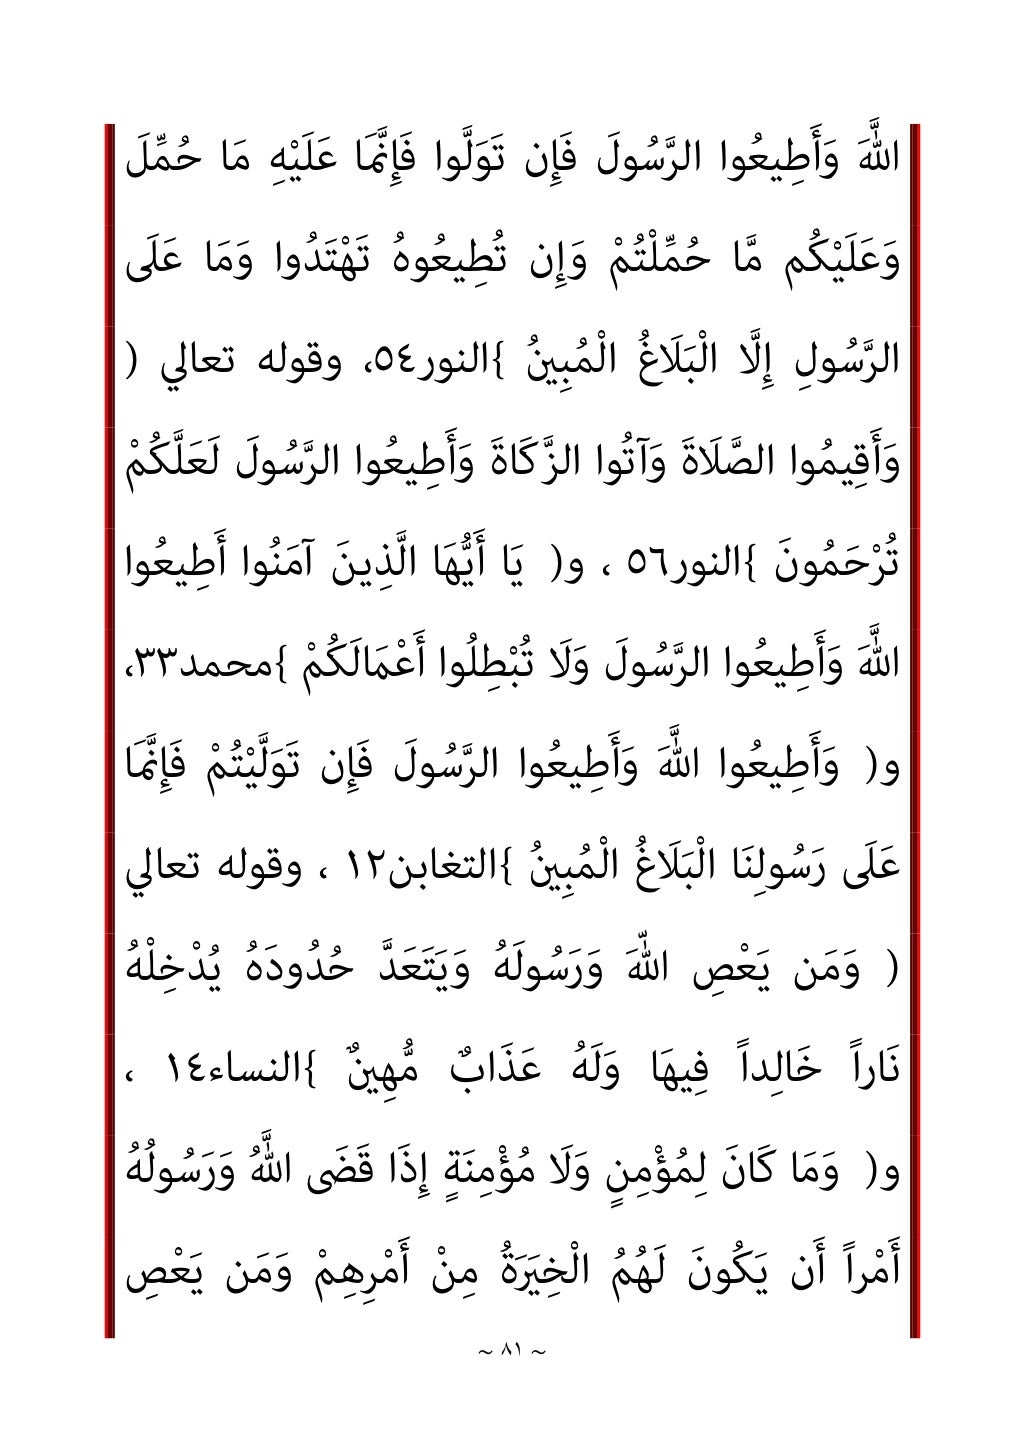 اللَّهَ وَأَطِيعُوا الرَّسُولَ فَإِن تَوَلَّوا فَإِنَّمَا عَلَيْهِ مَا حُمِّلَ
وَعَلَيْكُم مَّا حُمِّلْتُمْ وَإِن تُطِيعُوهُ تَهْتَدُوا وَمَا عَلَى
الرَّسُولِ إِلَّا الْبَلَاغُ الْمُبِينُ }النور٥٤، وقوله تعالي (
وَأَقِيمُوا الصَّلَاةَ وَآتُوا الزَّكَاةَ وَأَطِيعُوا الرَّسُولَ لَعَلَّكُمْ
تُرْحَمُونَ }النور٥٦ ، و( يَا أَيُّهَا الَّذِينَ آمَنُوا أَطِيعُوا
اللَّهَ وَأَطِيعُوا الرَّسُولَ وَلَا تُبْطِلُوا أَعْمَالَكُمْ }محمد٣٣،
و( وَأَطِيعُوا اللَّهَ وَأَطِيعُوا الرَّسُولَ فَإِن تَوَلَّيْتُمْ فَإِنَّمَا
عَلَى رَسُولِنَا الْبَلَاغُ الْمُبِينُ }التغابن١٢ ، وقوله تعالي
( وَمَن يَعْصِ اللّهَ وَرَسُولَهُ وَيَتَعَدَّ حُدُودَهُ يُدْخِلْهُ
نَاراً خَالِداً فِيهَا وَلَهُ عَذَابٌ مُّهِينٌ }النساء١٤ ،
و( وَمَا كَانَ لِمُؤْمِنٍ وَلَا مُؤْمِنَةٍ إِذَا قَضَى اللَّهُ وَرَسُولُهُ
أَمْراً أَن يَكُونَ لَهُمُ الْخِيَرَةُ مِنْ أَمْرِهِمْ وَمَن يَعْصِ
~ ٨١ ~